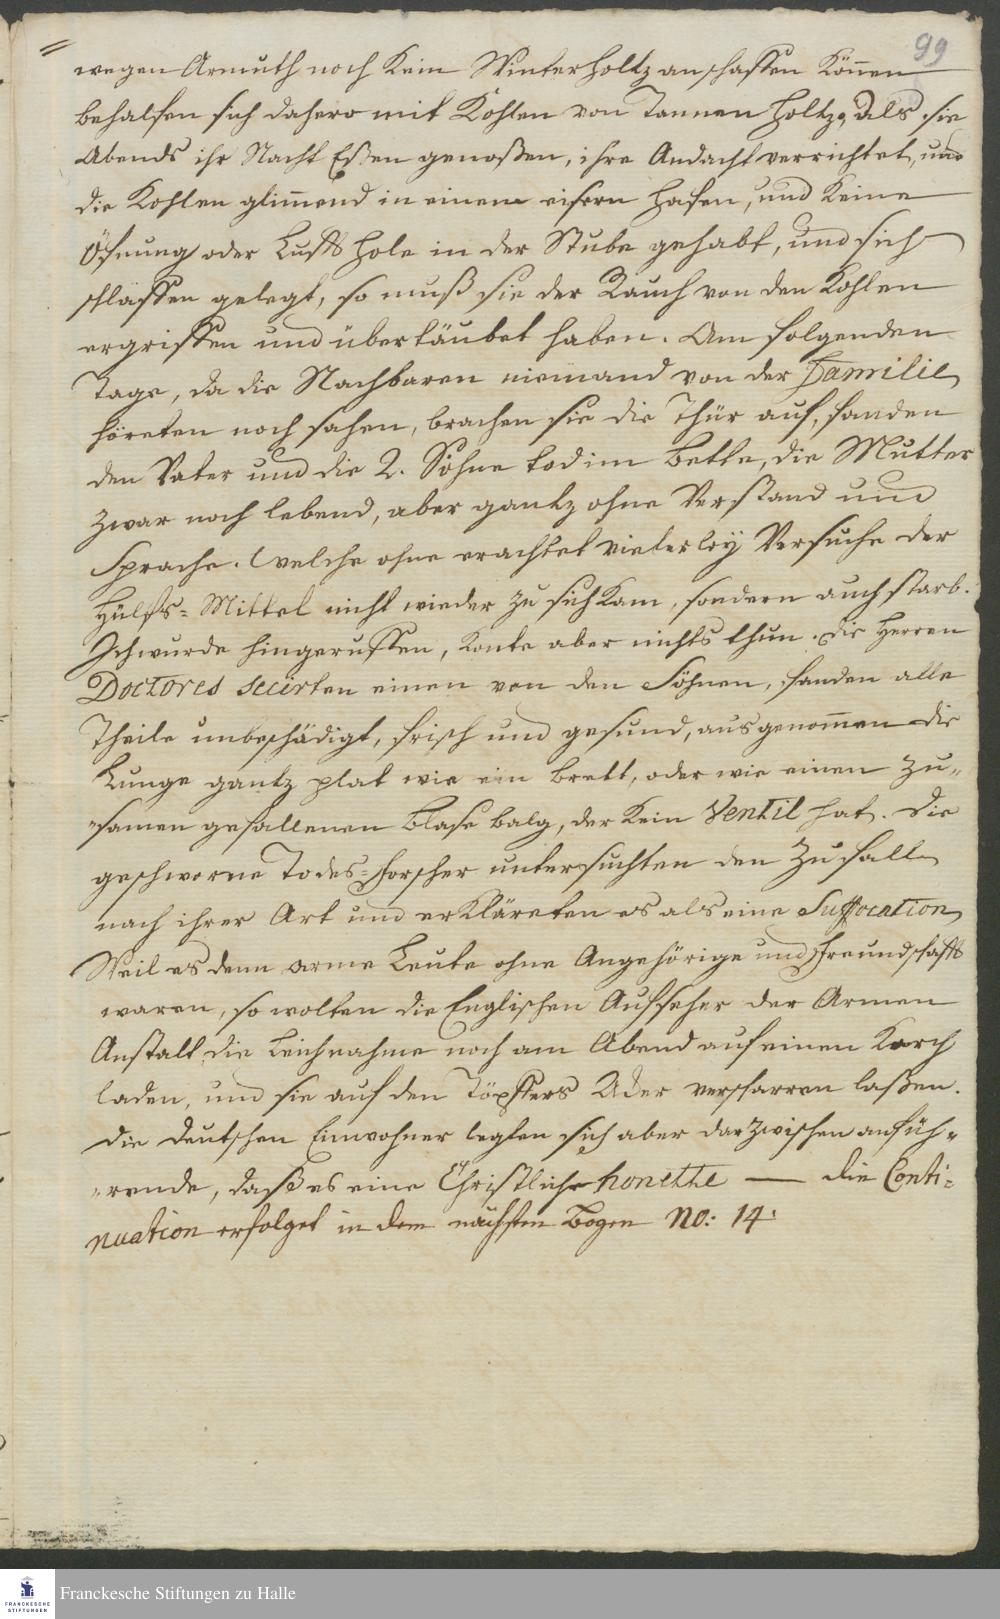 99
wegen Armuth noch Kein Winterholtz anschaffen Können
behalfen sich dahero mit Kohlen von Tannen Holtz, als sie
Abends ihr Nacht Eßen genoßen, ihre Andacht verrichtet, und
die Kohlen glim̅end in einem eisern Hafen, und Keine
Öfnung oder Lufft Hole in der Stube gehabt, und sich
schlaffen gelegt, so muß sie der Rauch von den Kohlen
ergriffen und übertäubet haben. Am folgenden
Tage, da die Nachbaren niemand von der Familie
höreten noch sahen, brachen sie die Thür auf, fanden
den Vater und die 2. Söhne tod im Bette, die Mutter
zwar noch lebend, aber gantz ohne Verstand und
Sprache. Welche ohne erachtet vielerley Versuche der
Hülfs-Mittel nicht wieder zu sich Kam, sondern auch starb.
Ich wurde hingeruffen, Konte aber nichts thun. die Herren
Doctores secirten einen von den Söhnen, fanden alle
Theile unbeschädigt, frisch und gesund, ausgenom̅en die
Lunge gantz plat wie ein Brett, oder wie einen zu-
samen gefallenen Blase balg, der Kein Ventil hat. Die
geschworne Todes-forscher untersuchten den Zufall
nach ihrer Art und erKläreten es als eine Suffocation
Weil es denn arme Leute ohne Angehörige und Freundschafft
waren, so wolten die Englischen Aufseher der Armen
Anstalt die Leichnahme noch am Abend auf einen Karch
laden, und sie auf den Töpffers Aker verscharren laßen.
die deutschen Einwohner legten sich aber darzwischen anfüh-
rende, daß es eine Christliche honette — die Conti-
nuation erfolget in dem nächsten Bogen No: 14.
FRANCKESCHE
STIFTUNGEN
Franckesche Stiftungen zu Halle